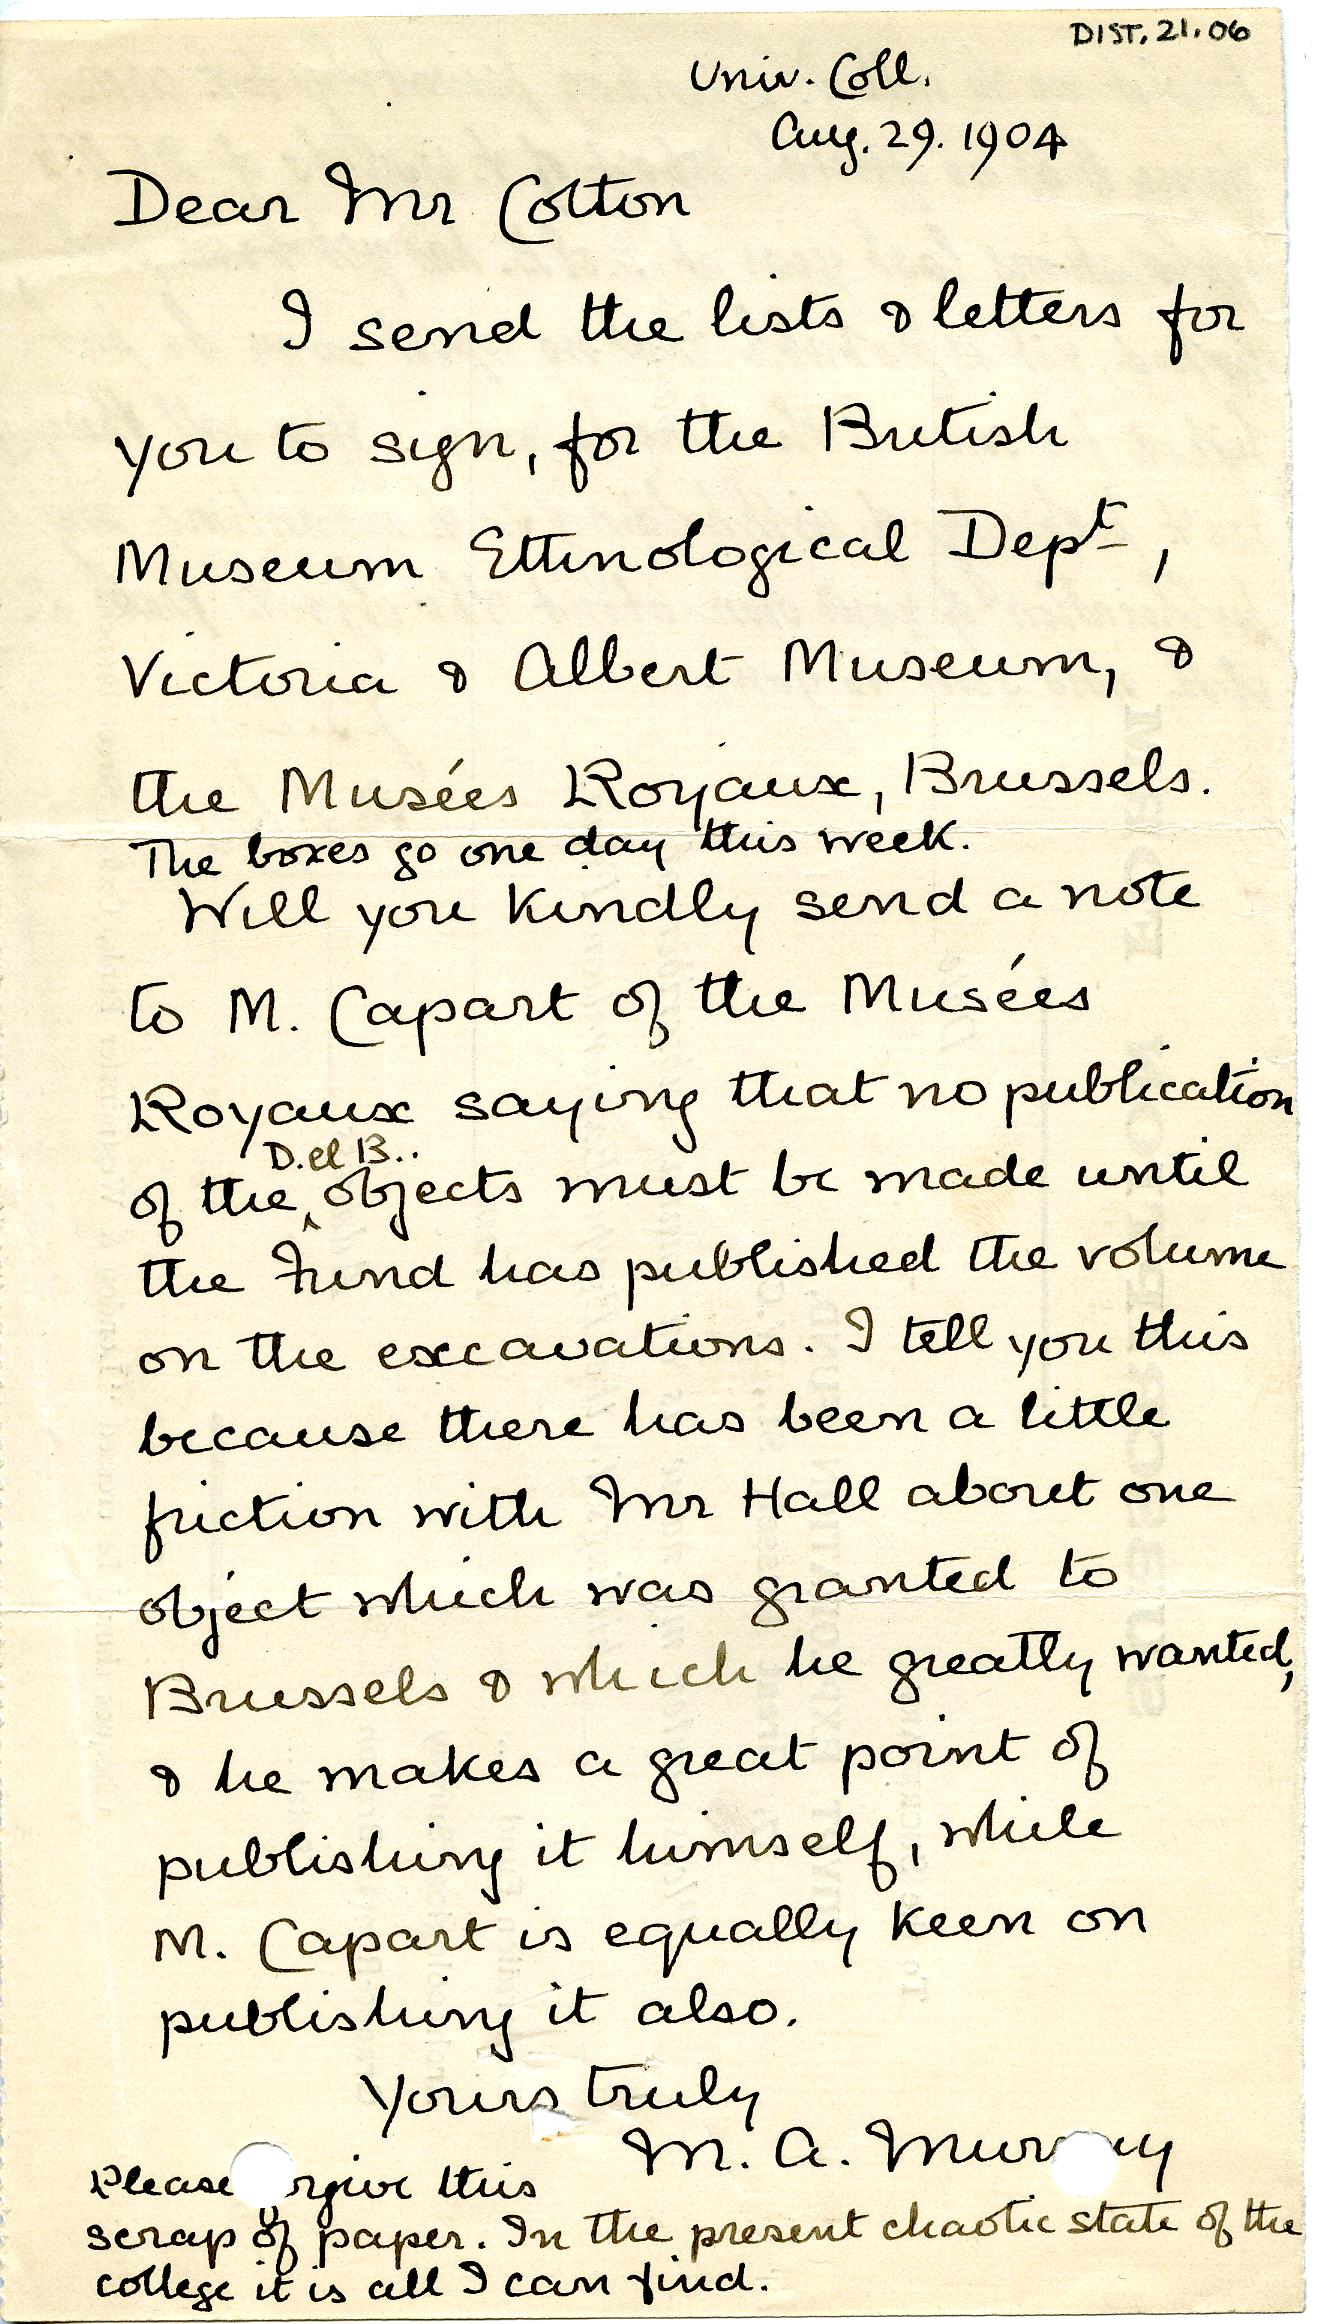 DIST. 21.06
Univ. Coll.
Aug. 29. 1904
Dear Mr Cotton
I send the lists & letters for
you to sign, for the British
Museum Ethnological Dept,
Victoria & Albert Museum, &
the Musées Royaux, Brussels.
The boxes go one day this week.
Will you kindly send a note
to M. Capart of the Musées
Royaux saying that no publication
D. el B..
of the ‸ objects must be made until
the Fund has published the volume
on the excavations. I tell you this
because there has been a little
friction with Mr Hall about one
object which was granted to
Brussels & which he greatly wanted,
& he makes a great point of
publishing it himself, while
M. Capart is equally keen on
publishing it also.
Yours truly
M. A. Murray
Please forgive this
scrap of paper. In the present chaotic state of the
college it is all I can find.